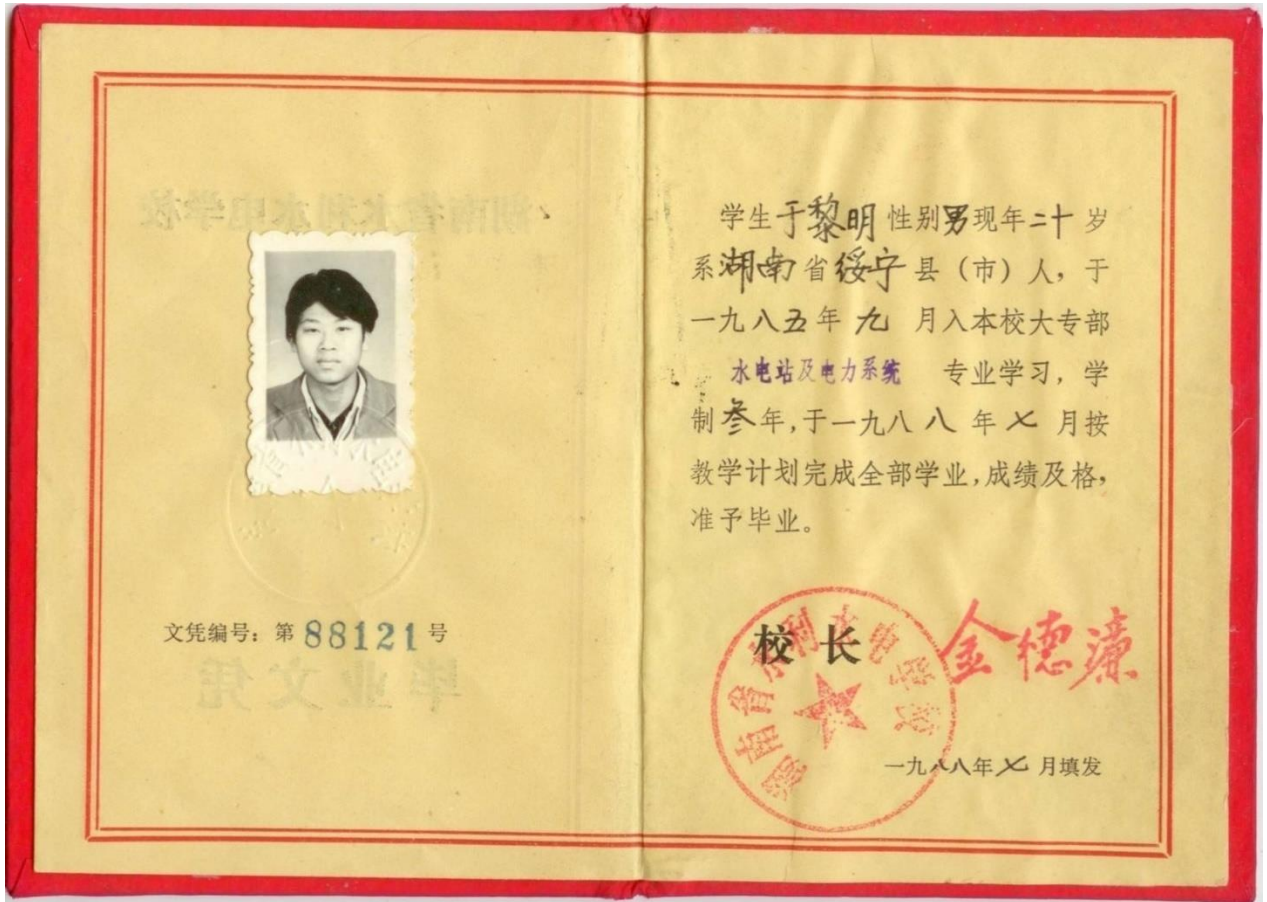 湖南省水利水电学校
毕业文凭
文凭编号：第 88121 号
学生于黎明性别男现年二十岁
系湖南省绥宁县（市）人，于
一九八五年九月入本校大专部
水电站及电力系统 专业学习，学
制叁年，于一九八八年七月按
教学计划完成全部学业，成绩及格，
准予毕业。
校长 金德濂
湖南省水利水电学校
一九八八年七月填发